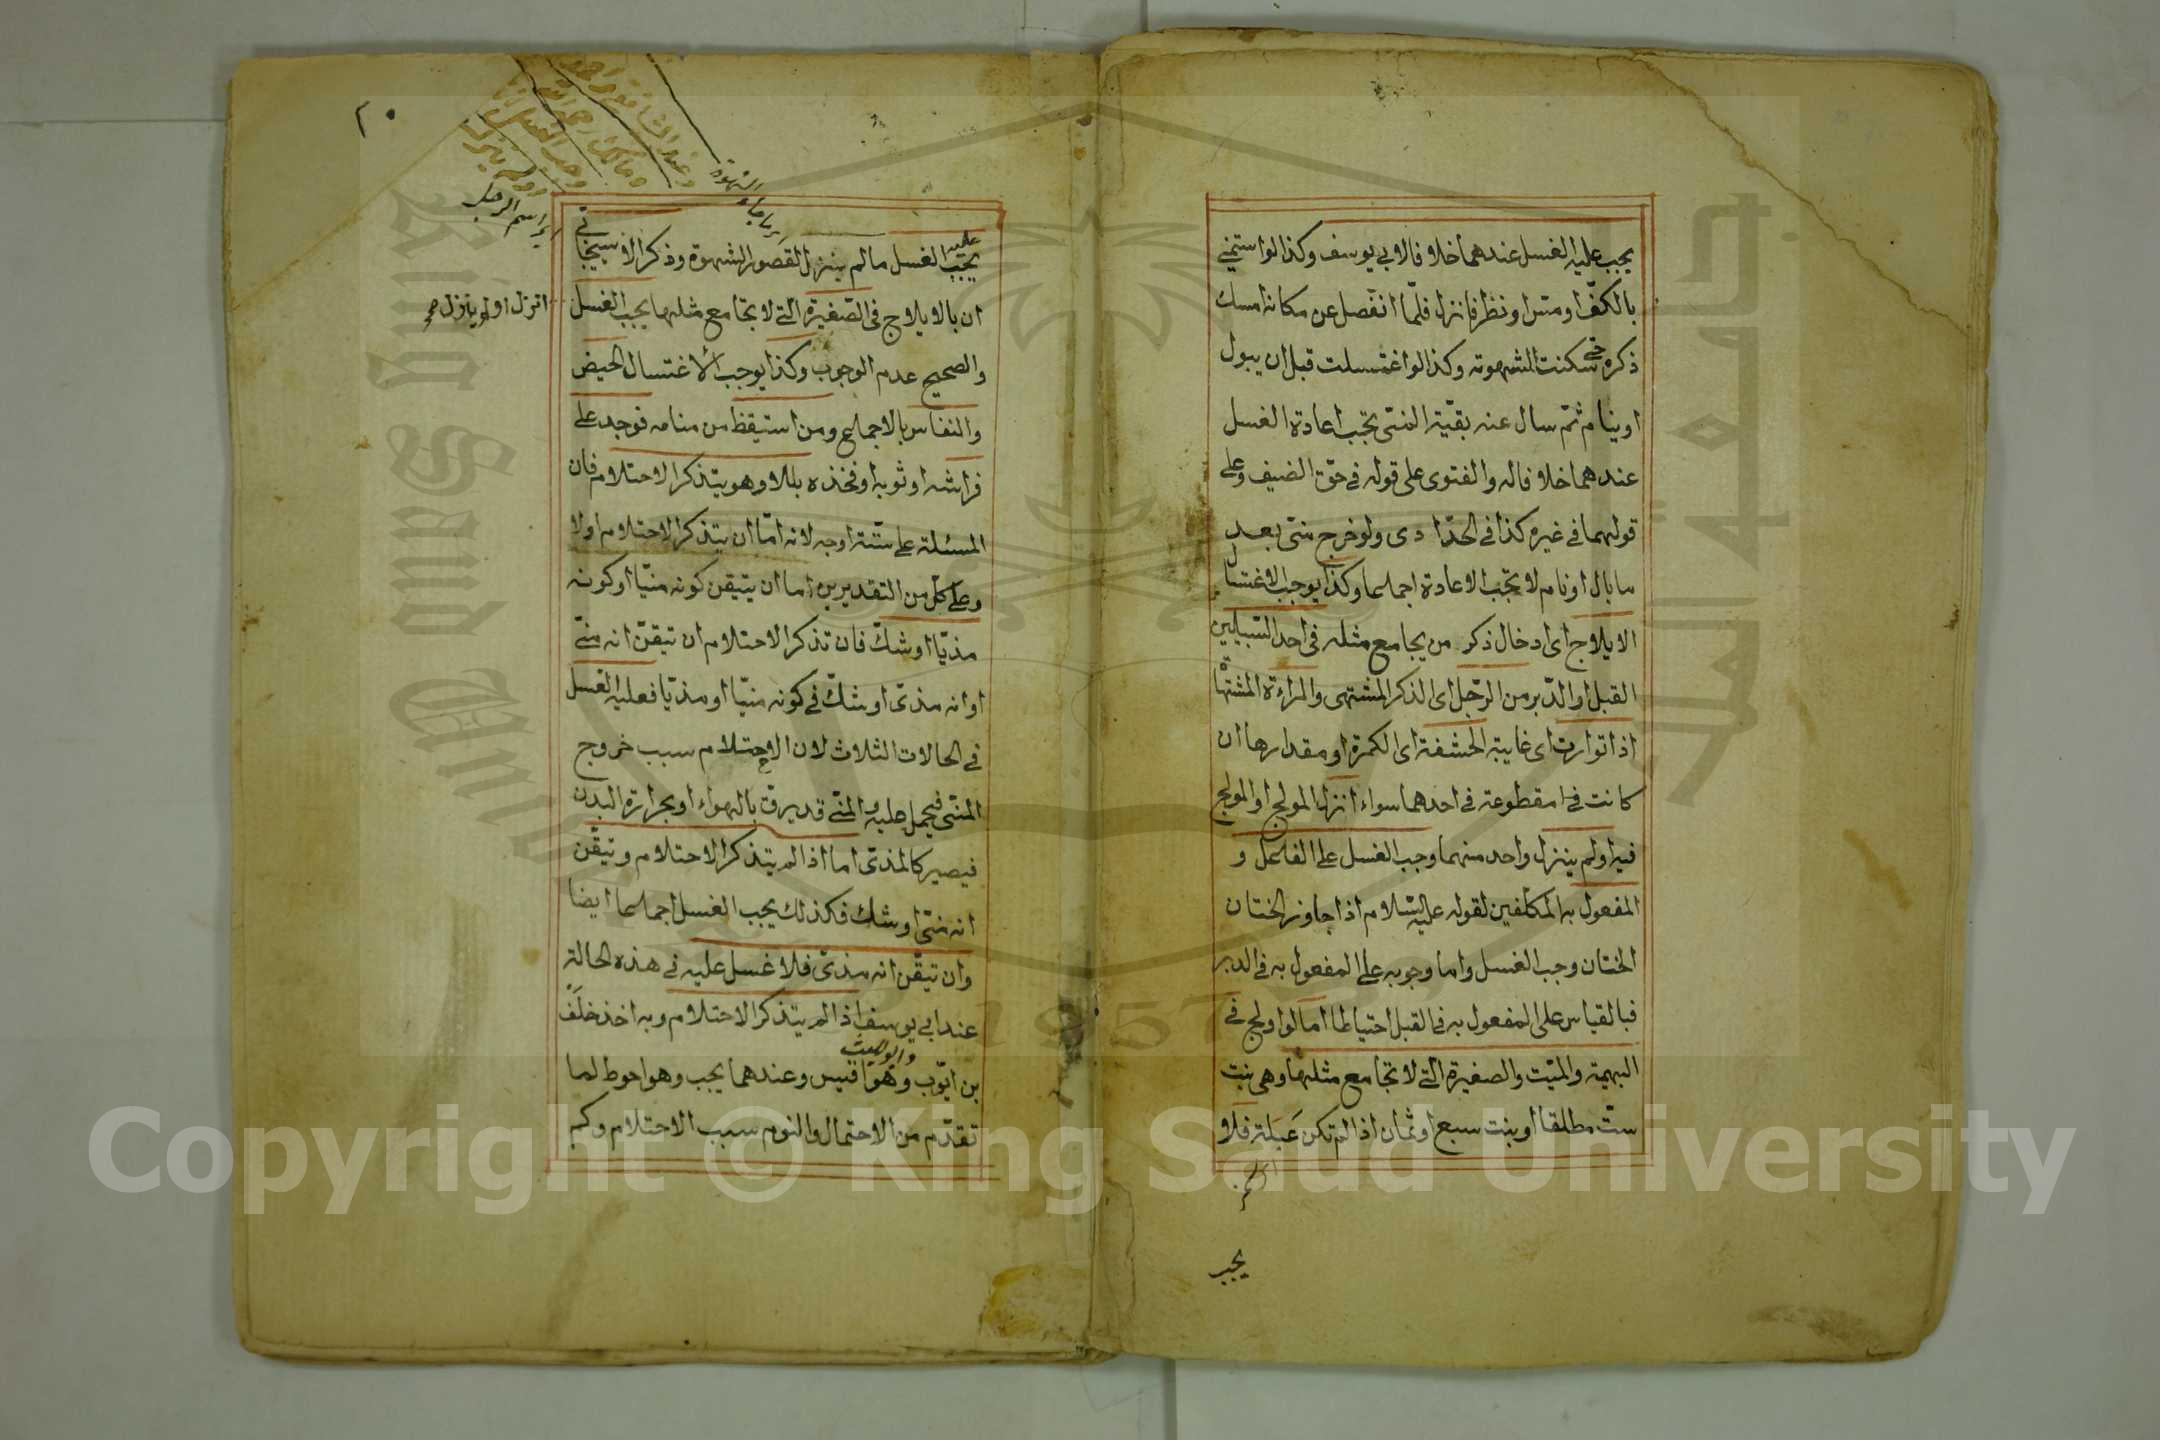 يجب عليه الغسل عندهما خلافا لابي يوسف وكذا لو استمنى
بالكف او مس او نظر فانزل فلما انفصل عن مكانه امسك
ذكره حتى سكنت شهوته وكذا لو اغتسلت قبل ان يبول
او ينام ثم سال عنه بقية المنى تجب اعادة الغسل
عندهما خلافا له والفتوى على قوله فى حق الضيف وعلى
قولهما فى غيره كذا فى الحدادى ولو خرج منى بعد
ما بال او نام لا تجب الاعادة اجماعا وكذا يوجب الاغتسال
الايلاج اى ادخال ذكر من يجامع مثله فى احد السبيلين
القبل او الدبر من الرجل اى الذكر المشتهى والمراءة المشتهاة
اذا توارت اى غابت الحشفة اى الكمرة او مقدارها ان
كانت فى مقطوعة فى احدهما سواء انزل المولج او المولج
فيه او لم ينزل واحد منهما وجب الغسل على الفاعل و
المفعول به المكلفين لقوله عليه السلام اذا جاوز الختان
الختان وجب الغسل واما وجوبه على المفعول به فى الدبر
فبالقياس على المفعول به فى القبل احتياطا اما لو اولج فى
البهيمة والميت والصغيرة التى لا تجامع مثلها وهى بنت
ست مطلقا او بنت سبع او ثمان اذا لم تكن عبلة فلا
يجب
٢٠
وعند الشافعى واحمد
ومالك رحمه الله
وجب الغسل
انزل او لم ينزل صح
يجب عليه الغسل ما لم ينزل لقصور الشهوة وذكر الاسبيجانى
ان بالايلاج فى الصغيرة التى لا تجامع مثلها يجب الغسل
والصحيح عدم الوجوب وكذا يوجب الاغتسال الحيض
والنفاس بالاجماع ومن استيقظ من منامه فوجد على
فراشه او ثوبه او فخذه بللا وهو يتذكر الاحتلام فان
المسئلة على ستة اوجه لانه اما ان يتذكر الاحتلام اولا
وعلى كل من التقديرين اما ان يتيقن كونه منيا او كونه
مذيا او شك فان تذكر الاحتلام ان تيقن انه منى
او انه مذى او شك فى كونه منيا او مذيا فعليه الغسل
فى الحالات الثلاث لان الاحتلام سبب خروج
المنى فيحمل عليه والمنى قد يرق بالهواء او بحرارة البدن
فيصير كالمذى اما اذا لم يتذكر الاحتلام وتيقن
انه منى او شك فكذلك يجب الغسل اجماعا ايضا
وان تيقن انه مذى فلا غسل عليه فى هذه الحالة
عند ابى يوسف اذا لم يتذكر الاحتلام وبه اخذ خلف
بن ايوب وابو الليث وهو اقيس وعندهما يجب وهو احوط لما
تقدم من الاحتمال والنوم سبب الاحتلام وكم
Copyright © King Saud University
1957